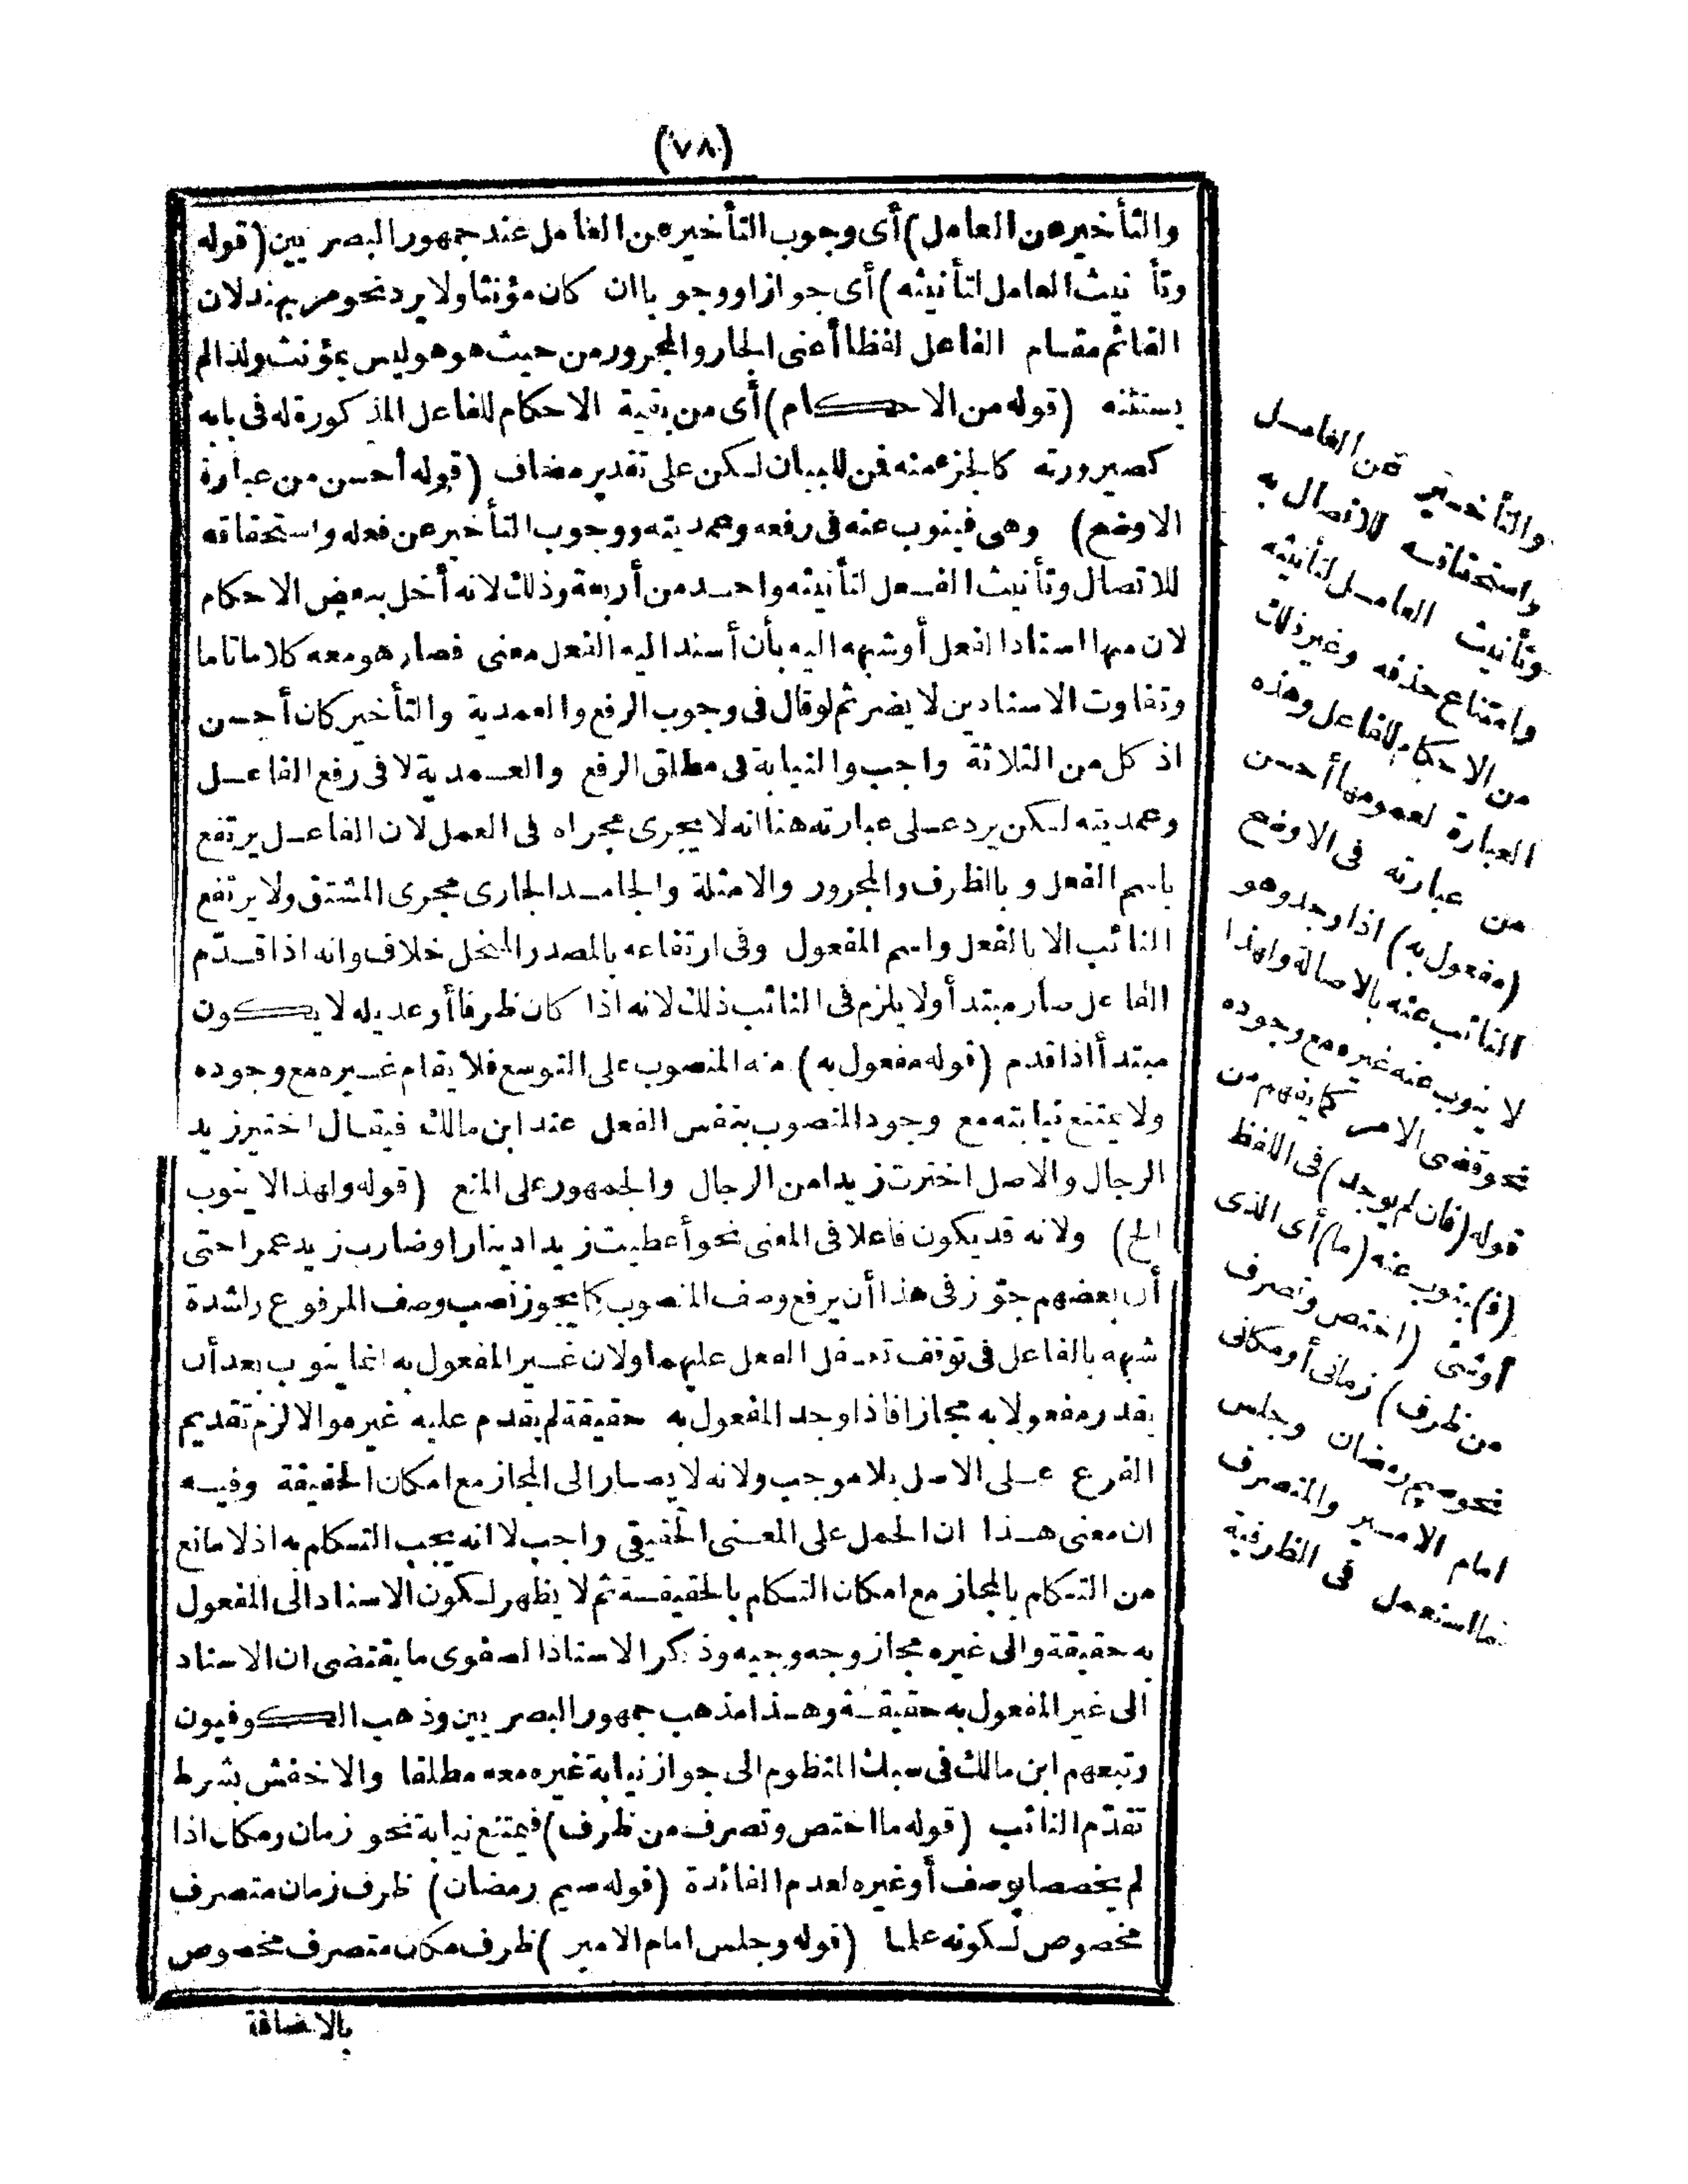 (٧٨)
والتأخير عن العامل) أى وجوب التأخير عن العامل عند جمهور البصريين (قوله
وتأنيث العامل لتأنيثه) أى جوازا ووجوبا ان كان مؤنثا ولا يرد نحو مر بهند لان
القائم مقام الفاعل لفظا أعنى الجار والمجرور من حيث هو هو ليس بمؤنث ولذا لم
يستثنه (قوله من الاحكام) أى من بقية الاحكام للفاعل المذكورة له فى بابه
كصيرورته كالجزء منه فمن للبيان لكن على تقدير مضاف (قوله أحسن من عبارة
الاوضح) وهى فينوب عنه فى رفعه وعمديته ووجوب التأخير عن فعله واستحقاقه
للاتصال وتأنيث الفعل لتأنيثه واحد من أربعة وذلك لانه أخل ببعض الاحكام
لان منها اسناد الفعل أو شبهه اليه بأن أسند اليه الفعل معنى فصار هو معه كلاما تاما
وتفاوت الاسنادين لا يضر ثم لو قال فى وجوب الرفع والعمدية والتأخير كان أحسن
اذ كل من الثلاثة واجب والنيابة فى مطلق الرفع والعمدية لا فى رفع الفاعل
وعمديته لكن يرد على عبارته هنا انه لا يجرى مجراه فى العمل لان الفاعل يرتفع
باسم الفعل وبالظرف والمجرور والامثلة والجامد الجارى مجرى المشتق ولا يرتفع
النائب الا بالفعل واسم المفعول وفى ارتفاعه بالمصدر المنحل خلاف وانه اذا قدّم
الفاعل صار مبتدأ ولا يلزم فى النائب ذلك لانه اذا كان ظرفا أو عديله لا يكون
مبتدأ اذا قدم (قوله مفعول به) منه المنصوب على التوسع فلا يقام غيره مع وجوده
ولا يمتنع نيابته مع وجود المنصوب بنفس الفعل عند ابن مالك فيقال اختير زيد
الرجال والاصل اخترت زيدا من الرجال والجمهور على المنع (قوله ولهذا لا ينوب
الخ) ولانه قد يكون فاعلا فى المعنى نحو أعطيت زيدا دينارا وضارب زيد عمرا حتى
أن بعضهم جوّز فى هذا أن يرفع وصف المنصوب كما يجوز نصب وصف المرفوع ولشدة
شبهه بالفاعل فى توقف تعقل الفعل عليهما ولان غير المفعول به انما ينوب بعد أن
يقدر مفعولا به مجازا فاذا وجد المفعول به حقيقة لم يقدم عليه غيره والا لزم تقديم
الفرع على الاصل بلا موجب ولانه لا يصار الى المجاز مع امكان الحقيقة وفيه
ان معنى هذا ان الحمل على المعنى الحقيقى واجب لا انه يجب التكلم به اذ لا مانع
من التكلم بالمجاز مع امكان التكلم بالحقيقة ثم لا يظهر لكون الاسناد الى المفعول
به حقيقة والى غيره مجاز وجه وجيه وذكر الاستاذ الصفوى ما يقتضى ان الاسناد
الى غير المفعول به حقيقة وهذا مذهب جمهور البصريين وذهب الكوفيون
وتبعهم ابن مالك فى سبك المنظوم الى جواز نيابة غيره معه مطلقا والاخفش بشرط
تقدّم النائب (قوله ما اختص وتصرف من ظرف) فيمتنع نيابة نحو زمان ومكان اذا
لم يخصصا بوصف أو غيره لعدم الفائدة (قوله صيم رمضان) ظرف زمان متصرف
مخصوص لكونه علما (قوله وجلس امام الامير) ظرف مكان متصرف مخصوص
بالاضافة
والتأخير عن العامل
واستحقاقه للاتصال به
وتأنيث العامل لتأنيثه
وامتناع حذفه وغير ذلك
من الاحكام للفاعل وهذه
العبارة لعمومها أحسن
من عبارته فى الاوضح
(مفعول به) اذا وجد وهو
النائب عنه بالاصالة ولهذا
لا ينوب عنه غيره مع وجوده
نحو وقضى الامر كما يفهم من
قوله (فان لم يوجد) فى اللفظ
(ف) ينوب عنه (ما) أى الذى
أو شئ (اختص وتصرف
من ظرف) زمانى أو مكانى
نحو صيم رمضان وجلس
امام الامير والمتصرف
ما استعمل فى الظرفية